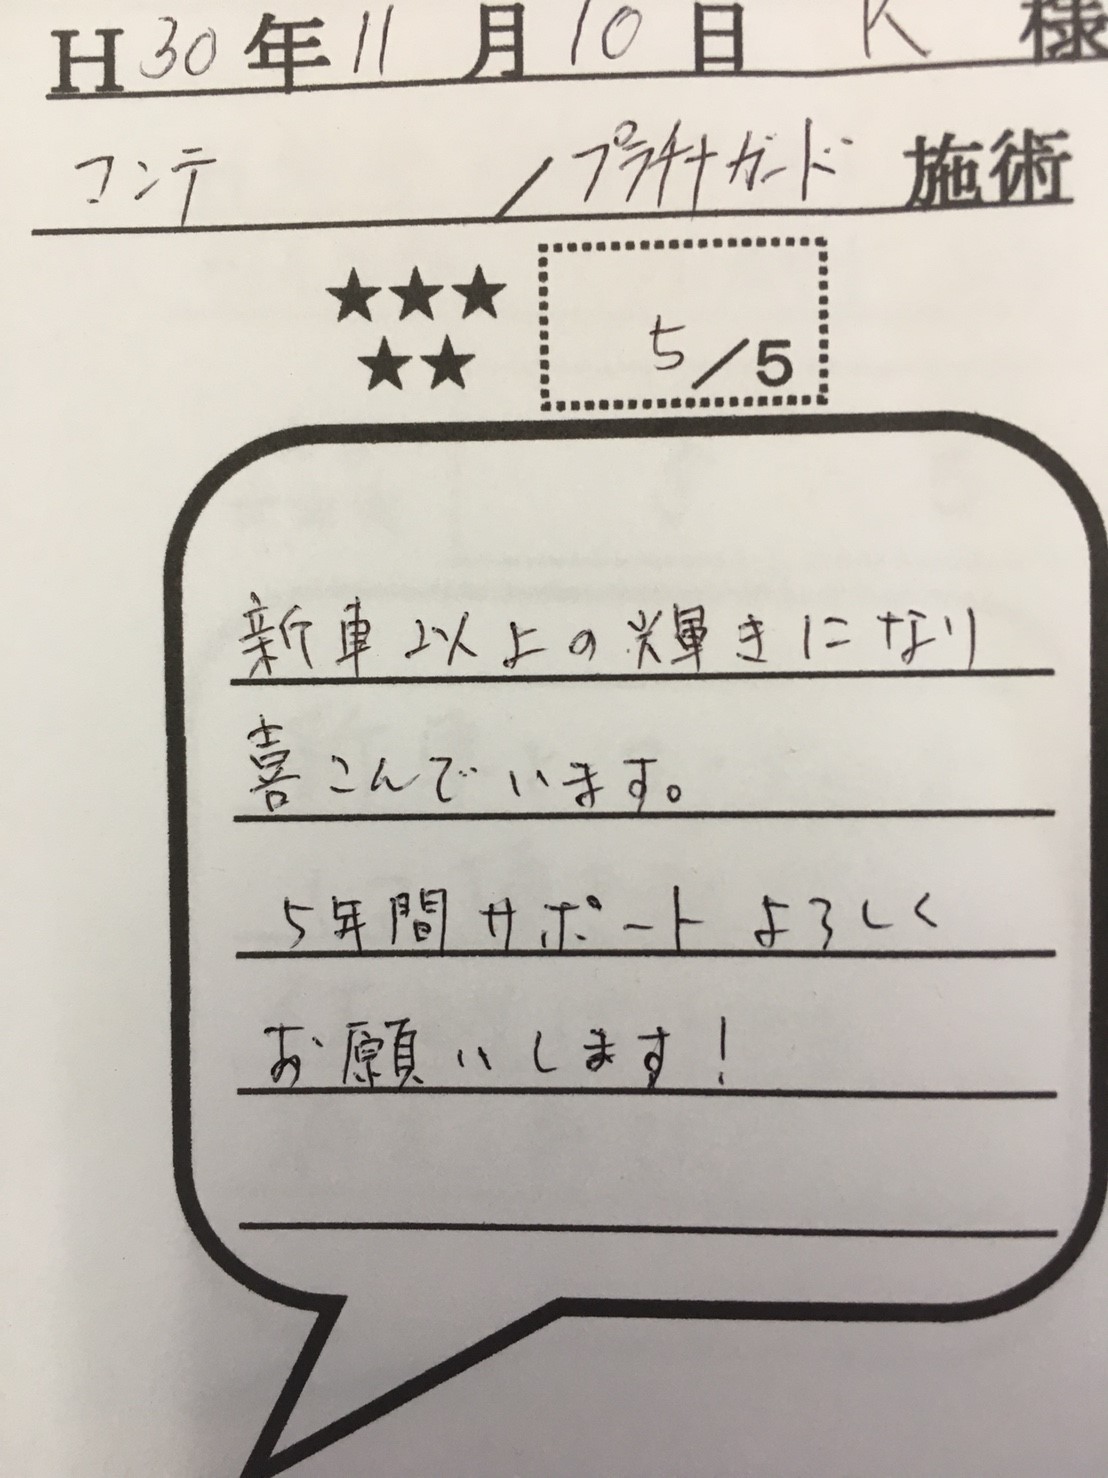 H30年11月10日 K 様
コンテ /プラチナガード 施術
★★★
★★
5/5
新車以上の輝きになり
喜こんでいます。
5年間サポートよろしく
お願いします！